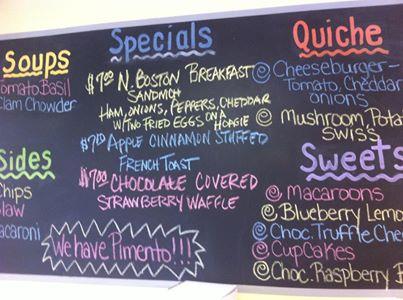 Soups
Tomato Basil
Clam Chowder
Sides
Chips
Slaw
Macaroni
Specials
$7.00 N. Boston Breakfast
Sandwich
Ham, onions, peppers, cheddar
w/two fried eggs on a
Hoagie
Apple Cinnamon Stuffed
French Toast
$7.00 Chocolate Covered
Strawberry Waffle
We have Pimento!!!
Quiche
Cheeseburger-
Tomato, Cheddar
onions
Mushroom, Potato
Swiss
Sweets
Macaroons
Blueberry Lemo
Choc. Truffle Chee
CupCakes
Choc. Raspberry B